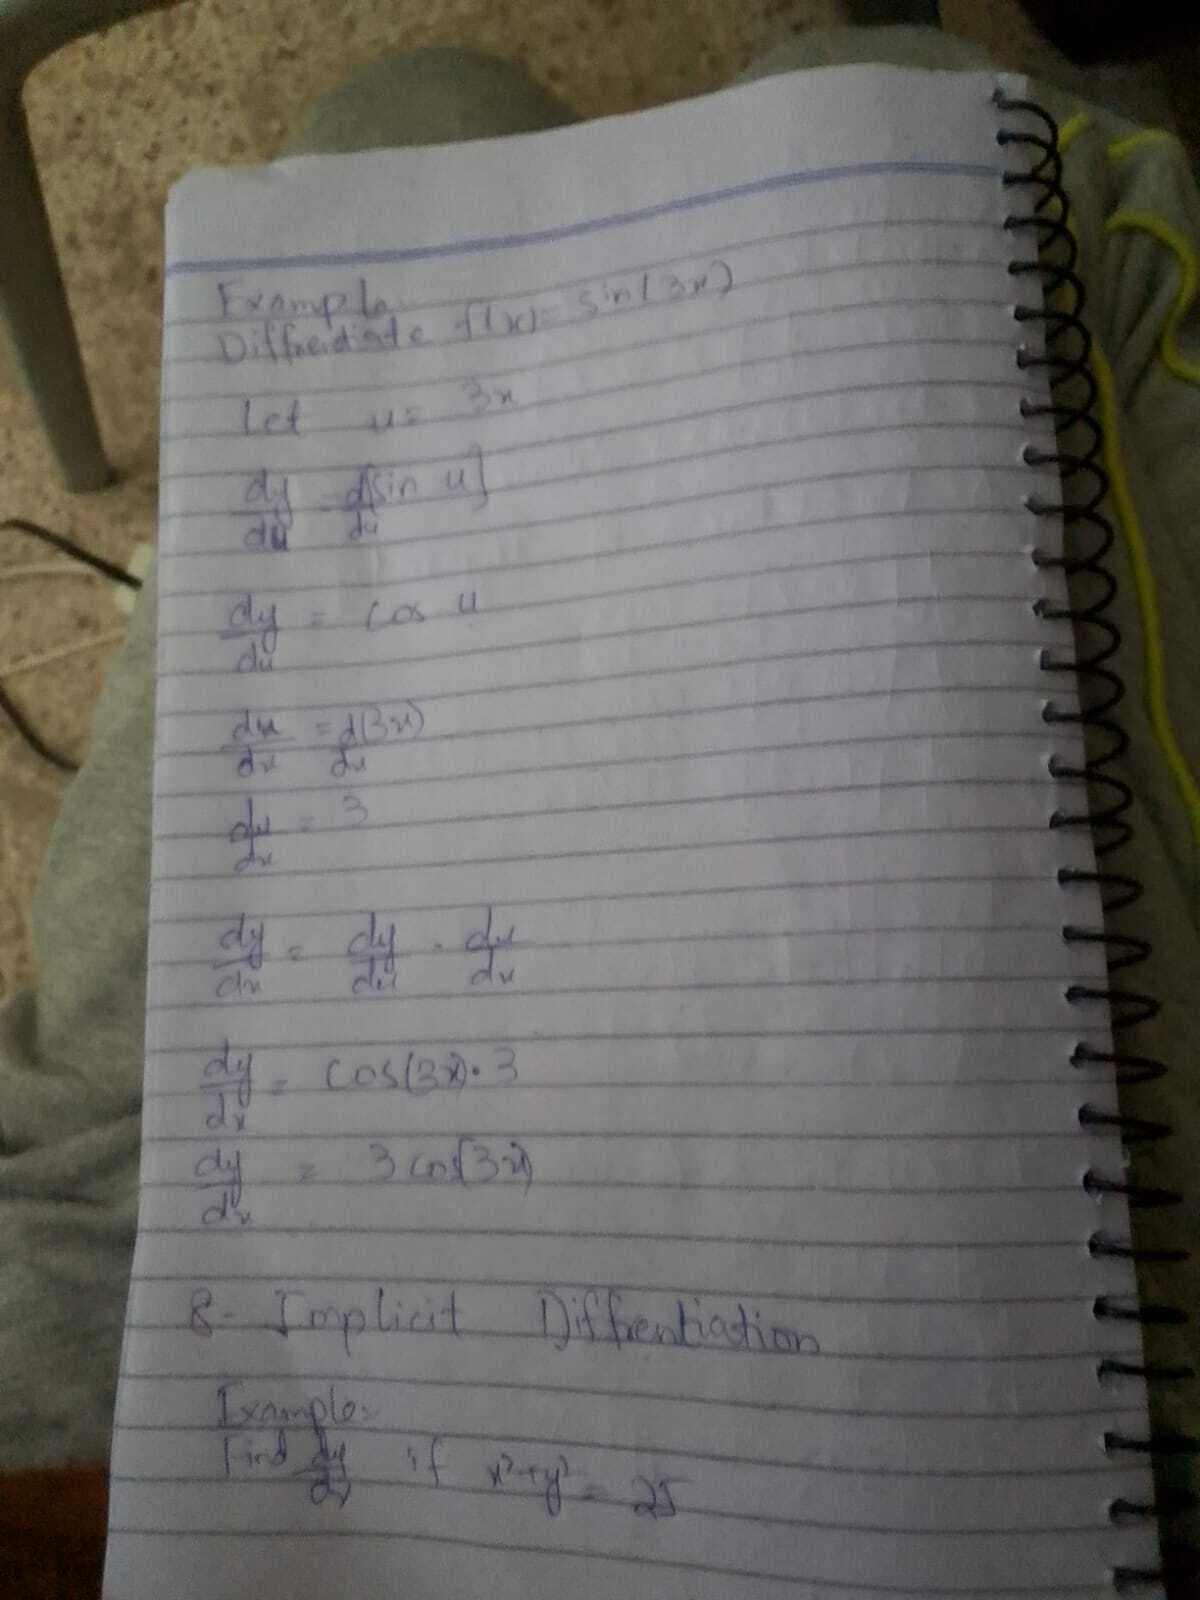 Example:
Diffrendiate f(x) = sin(3x)
Let u = 3x
dy/du = d[sin u]/du
dy/du = cos u
du/dx = d(3x)/dx
du/dx = 3
dy/dx = dy/du · du/dx
dy/dx = cos(3x)·3
dy/dx = 3 cos(3x)
8- Implicit Diffrentiation
Example:
Find dy/dx if x²+y² = 25